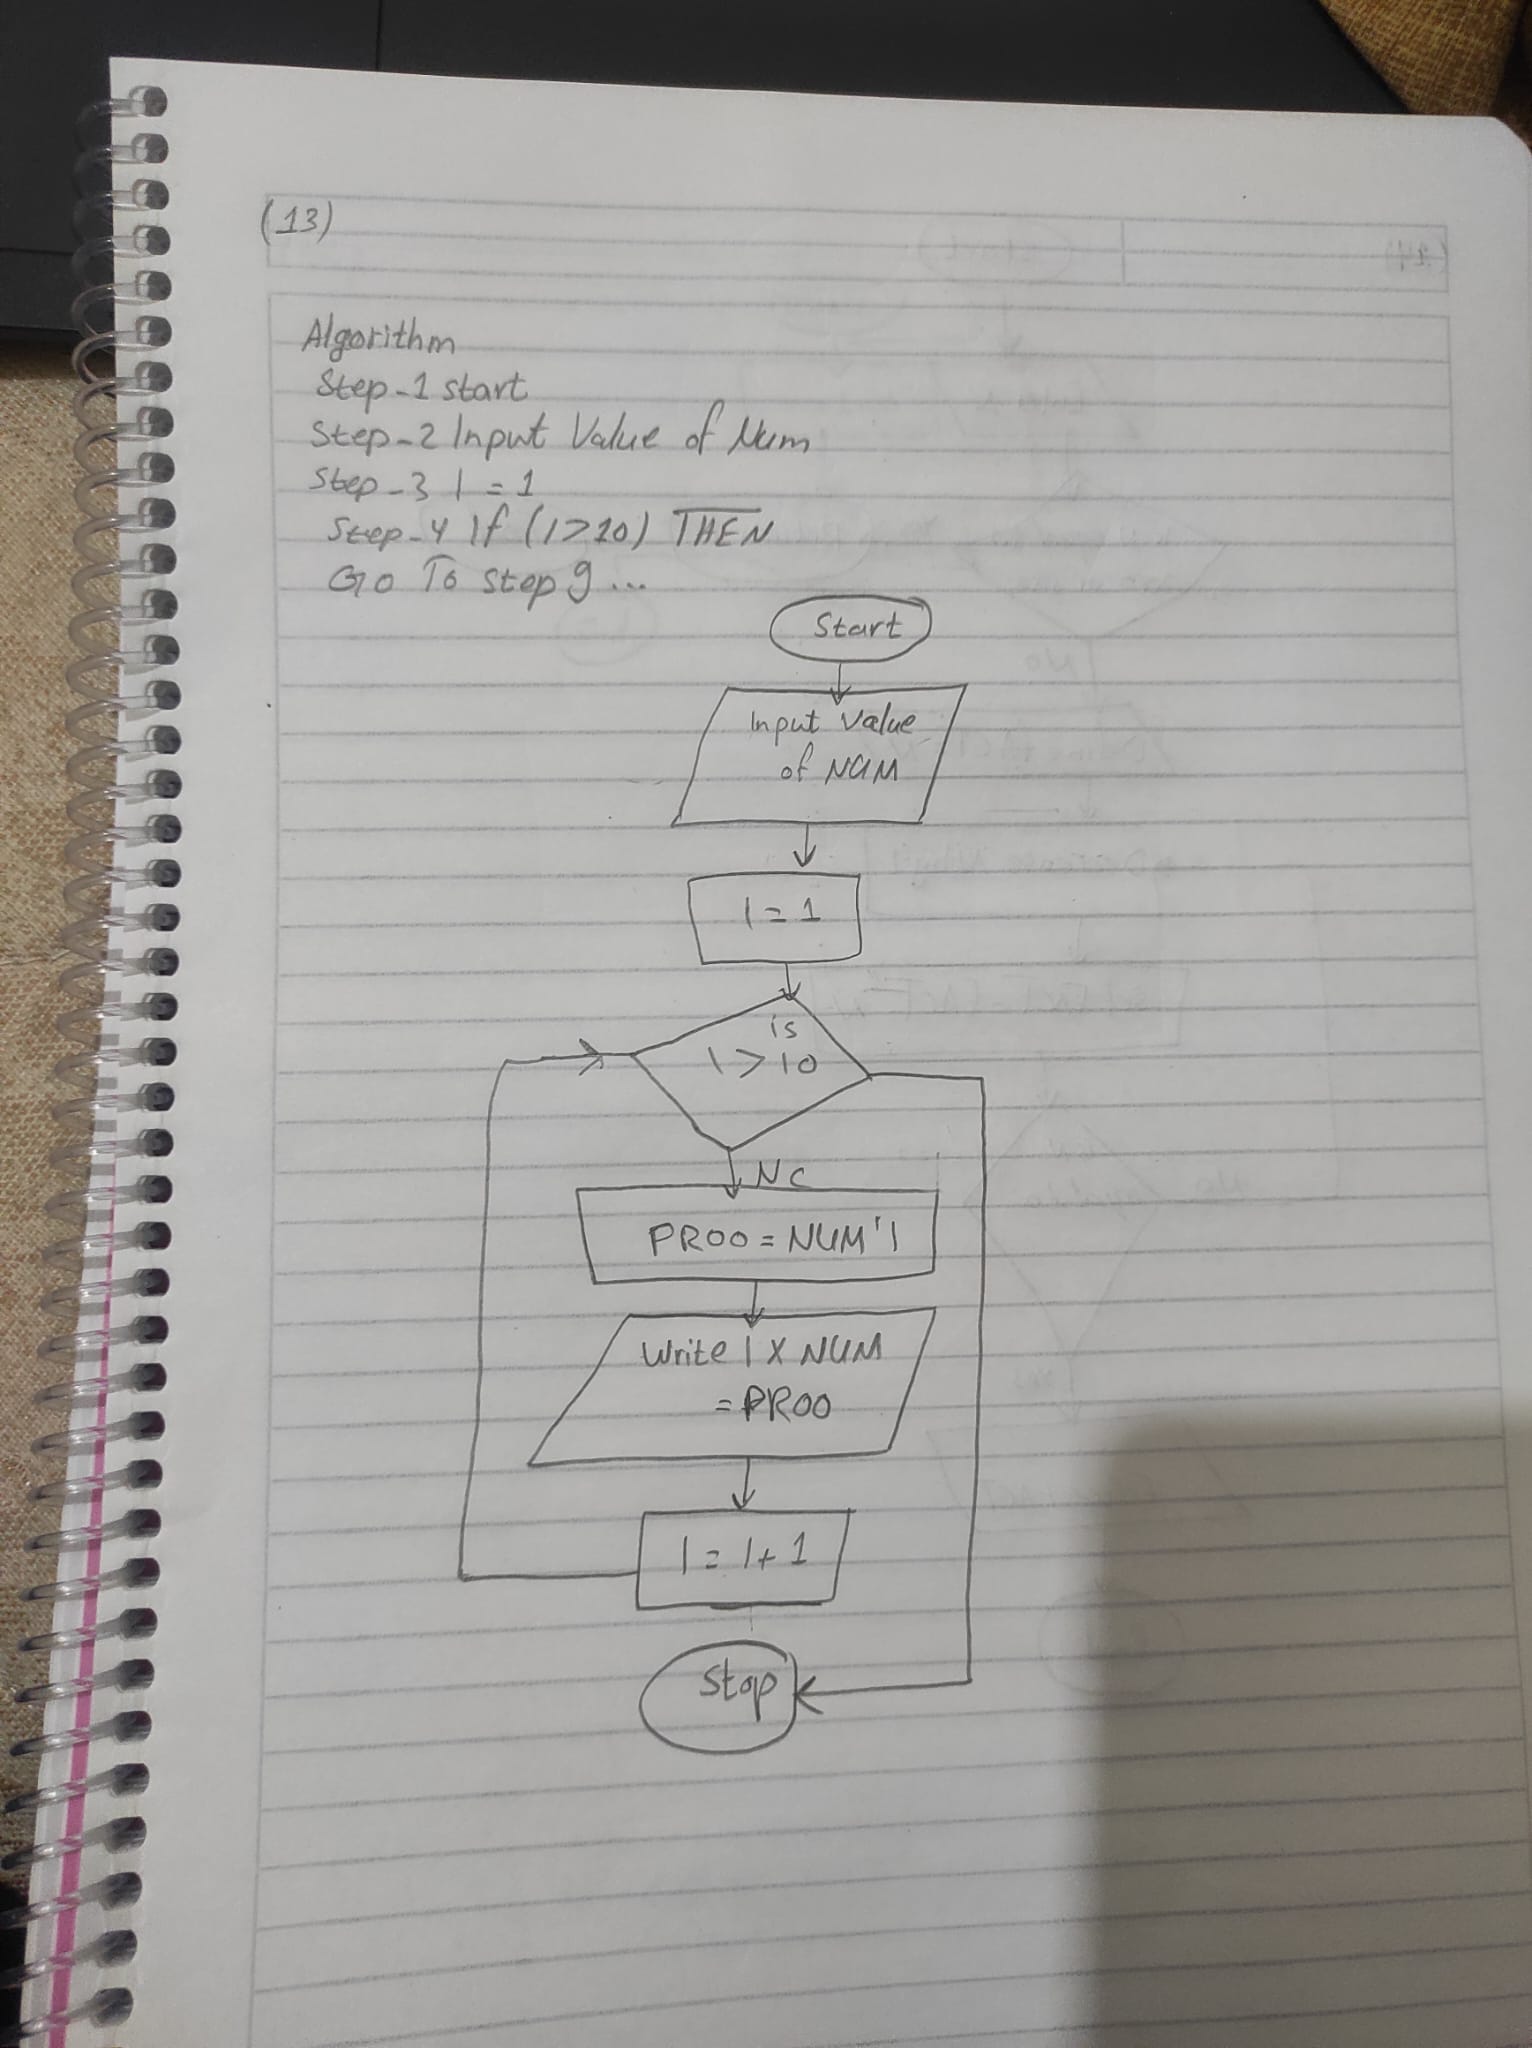 (13)
Algorithm
Step-1 start
Step-2 Input Value of Num
Step-3 I = 1
Step-4 If (I>10) THEN
Go To step 9...
Start
Input Value
of NUM
I = 1
is
I > 10
NO
PROO = NUM'I
Write I X NUM
= PROO
I = I + 1
Stop